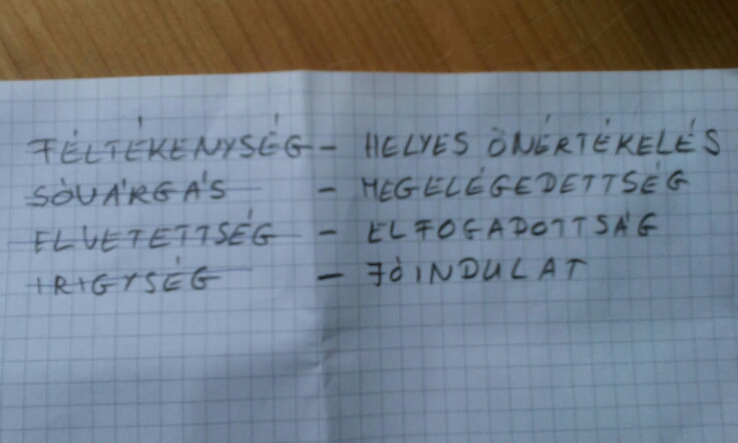 FÉLTÉKENYSÉG - HELYES ÖNÉRTÉKELÉS
SÓVÁRGÁS - MEGELÉGEDETTSÉG
ELVETETTSÉG - ELFOGADOTTSÁG
IRIGYSÉG - JÓINDULAT